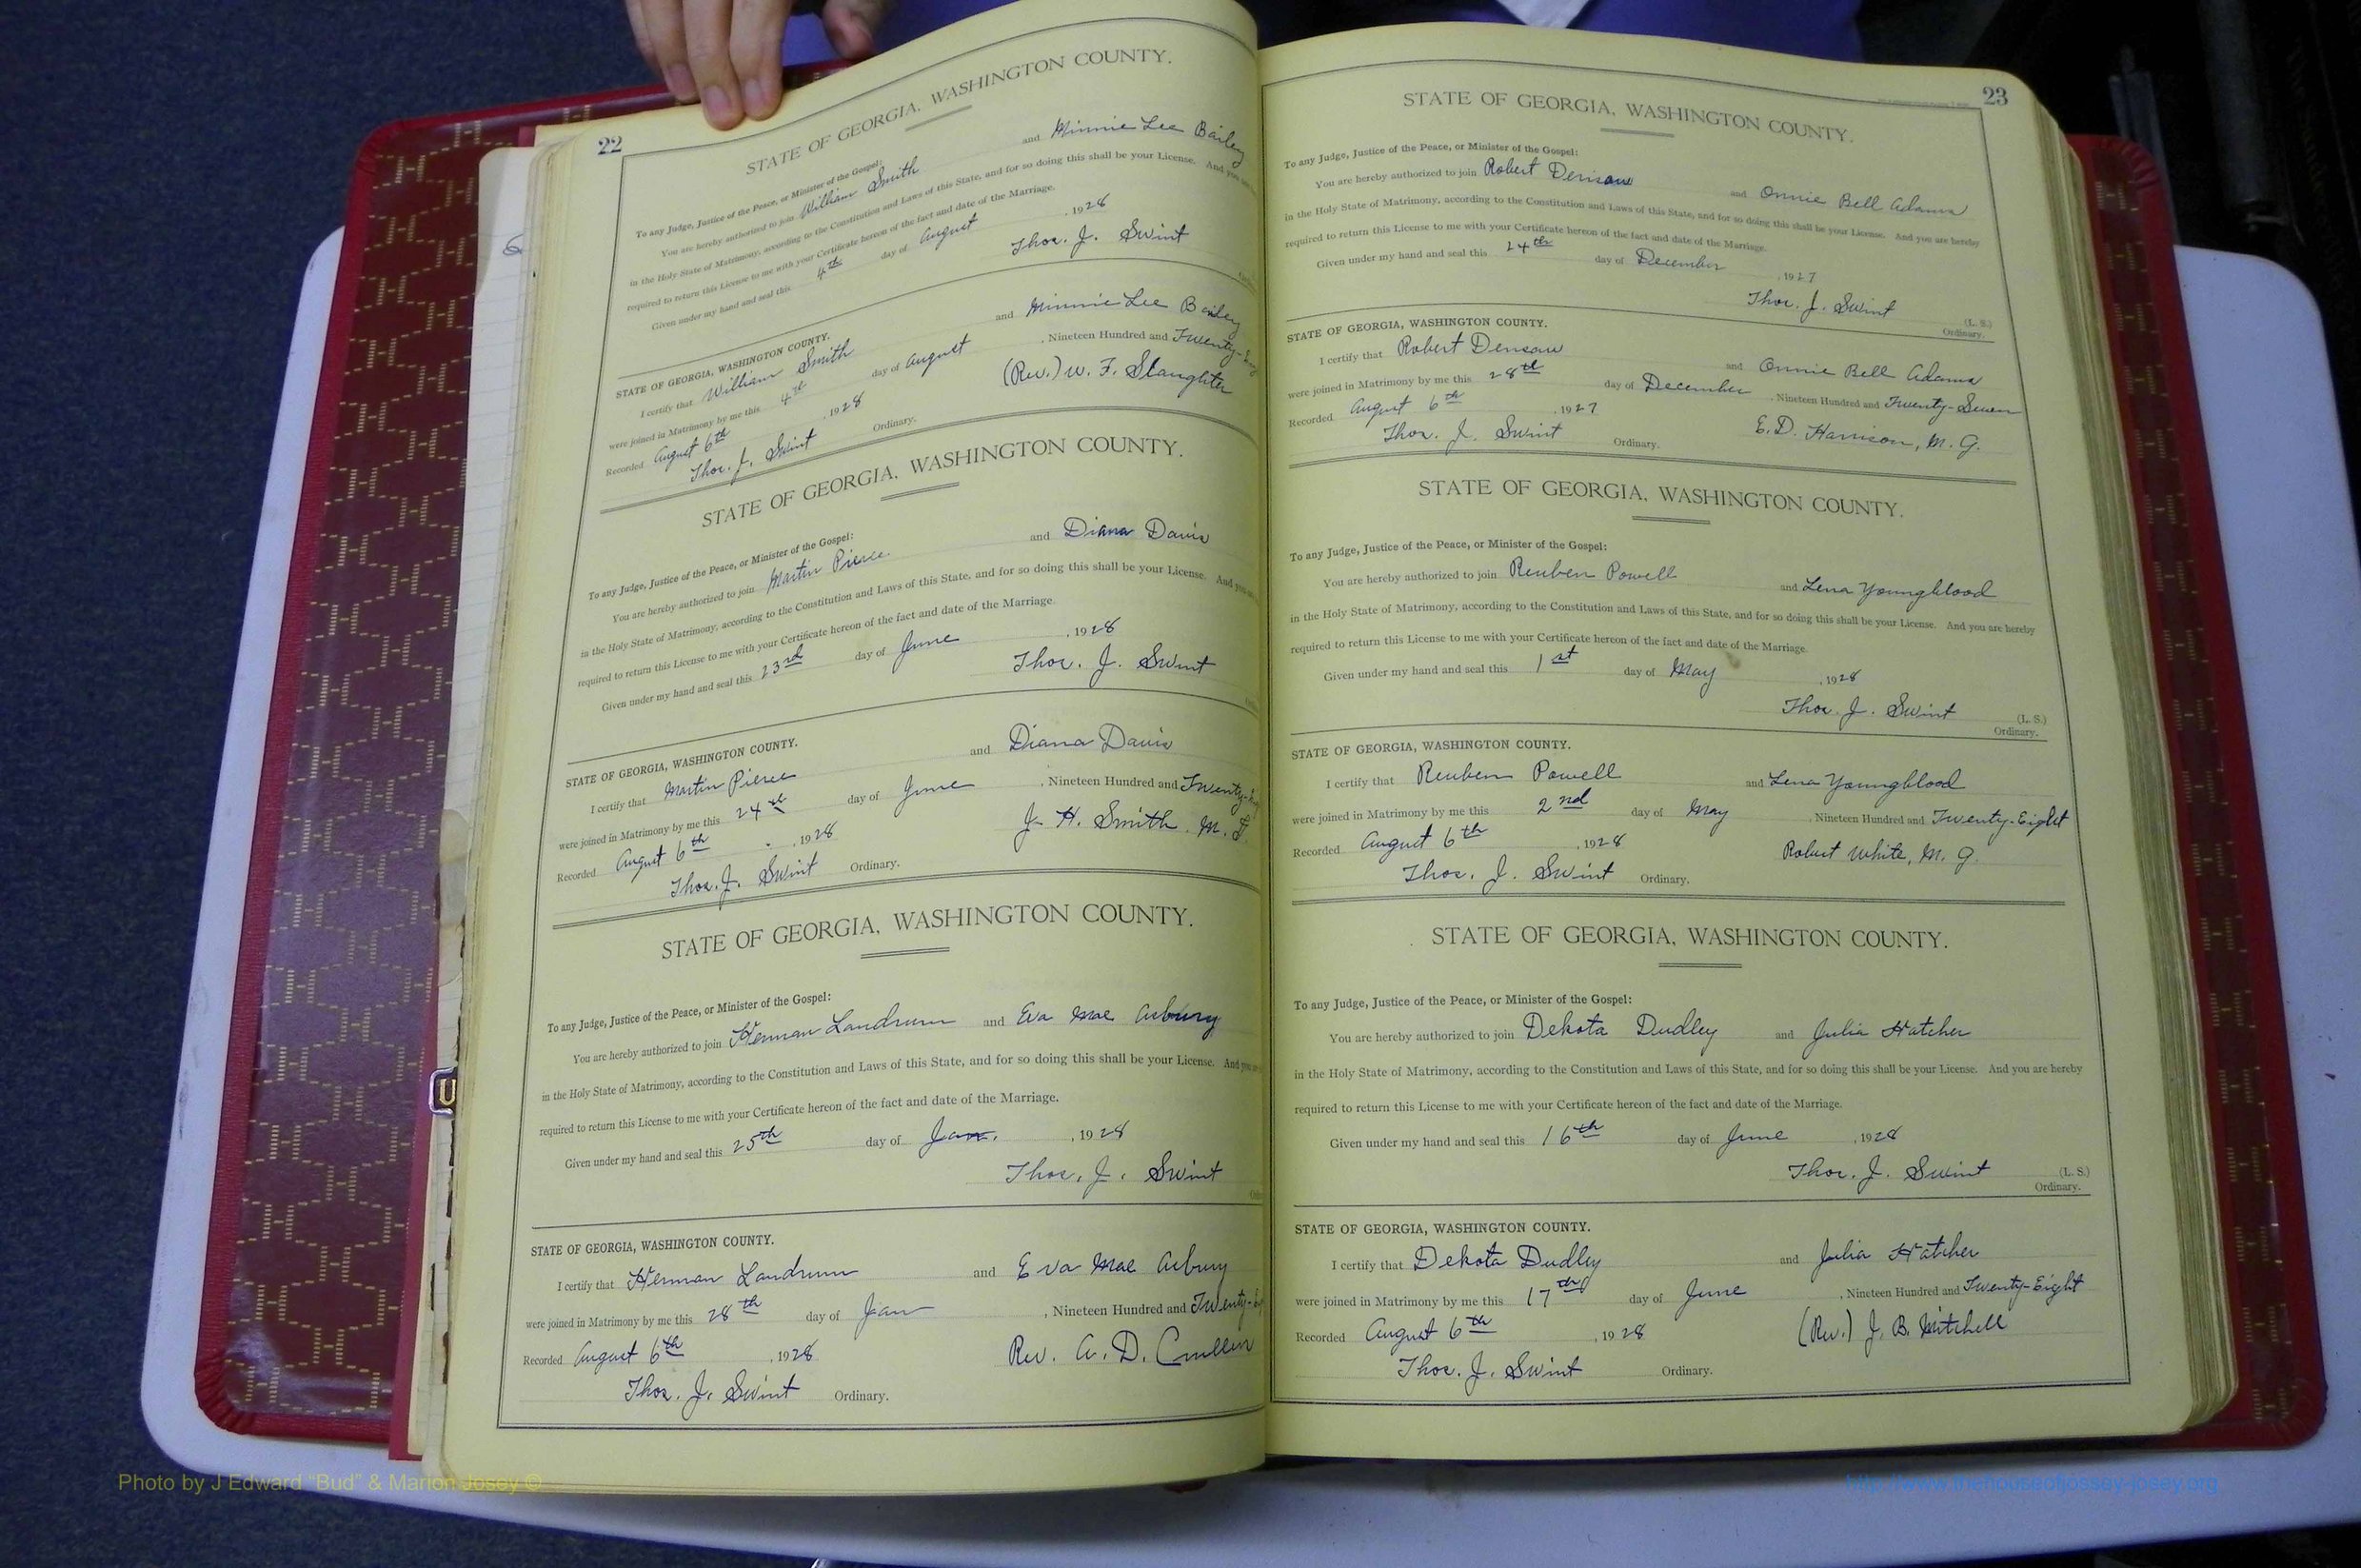 22
STATE OF GEORGIA, WASHINGTON COUNTY.
To any Judge, Justice of the Peace, or Minister of the Gospel:
You are hereby authorized to join William Smith and Minnie Lee Bailey
in the Holy State of Matrimony, according to the Constitution and Laws of this State, and for so doing this shall be your License. And you
required to return this License to me with your Certificate hereon of the fact and date of the Marriage.
Given under my hand and seal this 4th day of August, 1928
Thos. J. Swint
STATE OF GEORGIA, WASHINGTON COUNTY.
I certify that William Smith and Minnie Lee Bailey
were joined in Matrimony by me this 4th day of August, Nineteen Hundred and Twenty-
Recorded August 6th, 1928 (Rev.) W. F. Slaughter
Thos. J. Swint Ordinary.
STATE OF GEORGIA, WASHINGTON COUNTY.
To any Judge, Justice of the Peace, or Minister of the Gospel:
You are hereby authorized to join Martin Pierce and Diana Davis
in the Holy State of Matrimony, according to the Constitution and Laws of this State, and for so doing this shall be your License. And
required to return this License to me with your Certificate hereon of the fact and date of the Marriage.
Given under my hand and seal this 23rd day of June, 1928
Thos. J. Swint
STATE OF GEORGIA, WASHINGTON COUNTY.
I certify that Martin Pierce and Diana Davis
were joined in Matrimony by me this 24th day of June, Nineteen Hundred and Twenty-
Recorded August 6th, 1928 J. H. Smith M.
Thos. J. Swint Ordinary.
STATE OF GEORGIA, WASHINGTON COUNTY.
To any Judge, Justice of the Peace, or Minister of the Gospel:
You are hereby authorized to join Herman Landrum and Eva Mae Asbury
in the Holy State of Matrimony, according to the Constitution and Laws of this State, and for so doing this shall be your License. And you
required to return this License to me with your Certificate hereon of the fact and date of the Marriage.
Given under my hand and seal this 25th day of Jan., 1928
Thos. J. Swint
STATE OF GEORGIA, WASHINGTON COUNTY.
I certify that Herman Landrum and Eva Mae Asbury
were joined in Matrimony by me this 28th day of Jan, Nineteen Hundred and Twenty-
Recorded August 6th, 1928 Rev. A. D.
Thos. J. Swint Ordinary.
23
STATE OF GEORGIA, WASHINGTON COUNTY.
To any Judge, Justice of the Peace, or Minister of the Gospel:
You are hereby authorized to join Robert Denson and Onnie Bell Adams
in the Holy State of Matrimony, according to the Constitution and Laws of this State, and for so doing this shall be your License. And you are hereby
required to return this License to me with your Certificate hereon of the fact and date of the Marriage.
Given under my hand and seal this 24th day of December, 1927
Thos. J. Swint (L. S.)
Ordinary.
STATE OF GEORGIA, WASHINGTON COUNTY.
I certify that Robert Denson and Onnie Bell Adams
were joined in Matrimony by me this 28th day of December, Nineteen Hundred and Twenty-Seven
Recorded August 6th, 1927 E. D. Harrison, M. G.
Thos. J. Swint Ordinary.
STATE OF GEORGIA, WASHINGTON COUNTY.
To any Judge, Justice of the Peace, or Minister of the Gospel:
You are hereby authorized to join Reuben Powell and Lena Youngblood
in the Holy State of Matrimony, according to the Constitution and Laws of this State, and for so doing this shall be your License. And you are hereby
required to return this License to me with your Certificate hereon of the fact and date of the Marriage.
Given under my hand and seal this 1st day of May, 1928
Thos. J. Swint (L. S.)
Ordinary.
STATE OF GEORGIA, WASHINGTON COUNTY.
I certify that Reuben Powell and Lena Youngblood
were joined in Matrimony by me this 2nd day of May, Nineteen Hundred and Twenty-Eight
Recorded August 6th, 1928 Robert White, M. G.
Thos. J. Swint Ordinary.
STATE OF GEORGIA, WASHINGTON COUNTY.
To any Judge, Justice of the Peace, or Minister of the Gospel:
You are hereby authorized to join Dekota Dudley and Julia Hatcher
in the Holy State of Matrimony, according to the Constitution and Laws of this State, and for so doing this shall be your License. And you are hereby
required to return this License to me with your Certificate hereon of the fact and date of the Marriage.
Given under my hand and seal this 16th day of June, 1928
Thos. J. Swint (L. S.)
Ordinary.
STATE OF GEORGIA, WASHINGTON COUNTY.
I certify that Dekota Dudley and Julia Hatcher
were joined in Matrimony by me this 17th day of June, Nineteen Hundred and Twenty-Eight
Recorded August 6th, 1928 (Rev.) J. B. Mitchell
Thos. J. Swint Ordinary.
Photo by J Edward "Bud" & Marion Josey ©
http://www.thehouseofjossey-josey.org